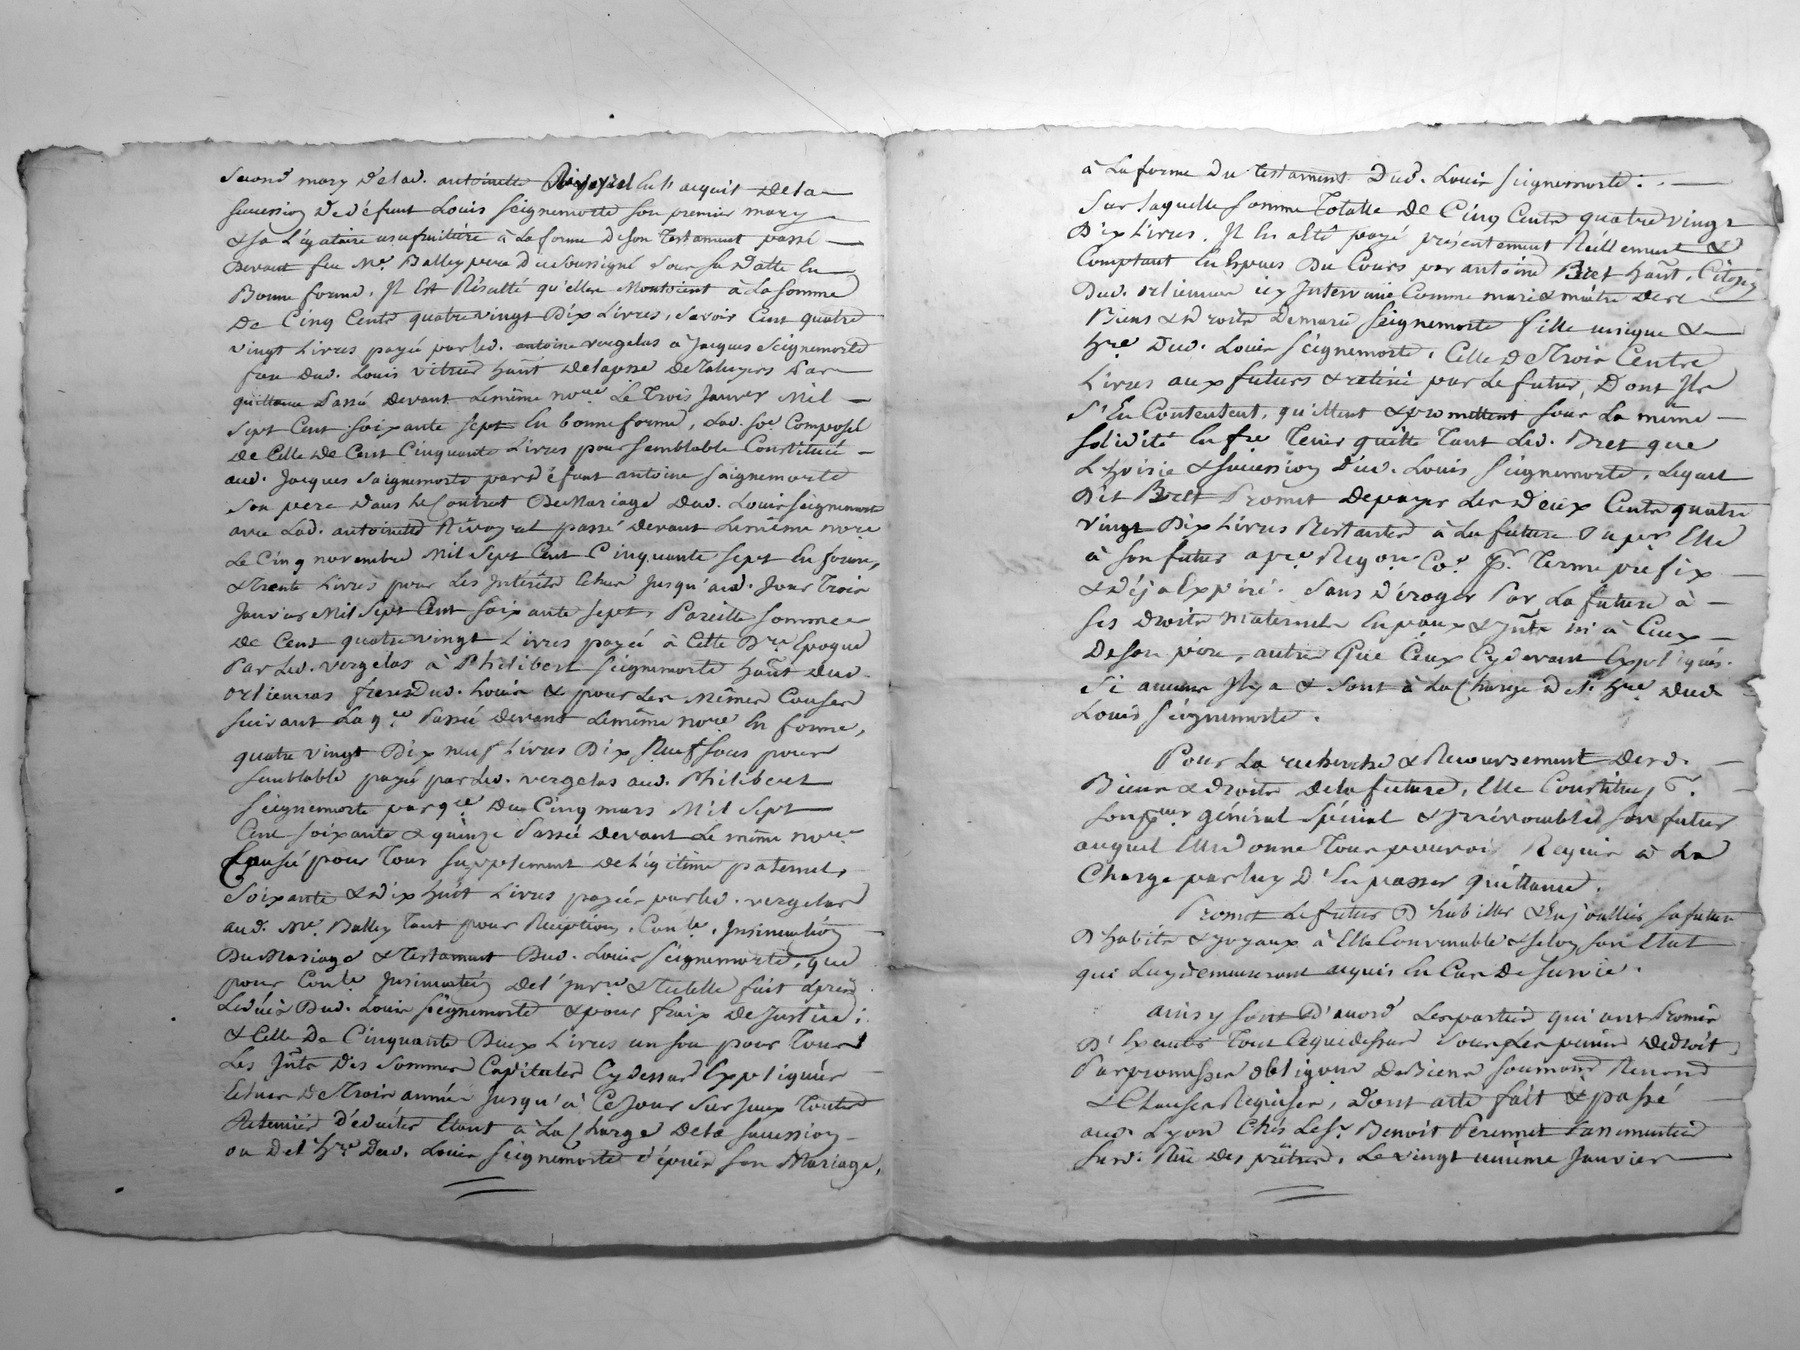 second mary de lad. antoinette Rivoyrat en l'acquit de la
succession de défunt Louis seignemorte son premier mary
& sa Légataire usufruitiere à La forme de son Testament passé
devant feu Me. Balley pere du soussigné sous sa datte En
Bonne forme, Il Est Résulté qu'elles Montoient à La somme
De Cinq Cents quatre vingt Dix Livres, savoir Cent quatre
vingt Livres payée par led. antoine vergelas a Jacques seignemorte
frere dud. Louis habt. de Taluyers Par
quittance Passée devant Le même nore. Le Trois Janver Mil
sept Cent soixante sept En bonne forme, Lad. soe. Composée
de Celle de Cent Cinquante Livres pour semblable Constituée
aud. Jacques seignemorte par défunt antoine seignemorte
son pere dans le Contrat De Mariage dud. Louis seignemorte
avec Lad. antoinette Rivoyrat passé devant Le même nore
Le Cinq novembre Mil sept Cent Cinquante sept En forme,
& Trente Livres pour Les Intérêts Echus Jusqu'aud. Jour Trois
Janvier Mil sept Cent soixante sept, Pareille somme
de Cent quatre vingt Livres payée à Cette Dre. Epoque
Par Led. vergelas à Philibert seignemorte habt. dud.
orlienas freres dud. Louis & pour Les Mêmes Causes
suivant La qce. Passée devant Le même nore En forme,
quatre vingt Dix neuf Livres Dix Neuf sous pour
semblable payée par Led. vergelas aud. Philibert
seignemorte par qce. Du Cinq mars Mil sept
Cent soixante & quinze Passée devant Le même nore.
Causée pour Tous supplement de Légitime paternel,
soixante & dix huit Livres payée par led. vergelas
aud. Me. Balley Tant pour Réception, Conle. Insinuation
Du Mariage & Testament Dud. Louis seignemorte, que
pour Conle. Insinuation de l'Invre. & tutelle fait après
Le décès Dud. Louis seignemorte & pour fraix De Justice;
& Celle De Cinquante Deux Livres un sou pour Tous
Les Jnts. Des sommes Capitales Cy dessus Expliquées
Echus De Trois années Jusqu'à Ce Jour sur Jceux Toutes
Retenües déduites Etant à La Charge De la succession
ou De L'hre. Dud. Louis seignemorte depuis son Mariage,
à La forme Du testament Dud. Louis seignemorte.
Sur laquelle somme Totalle De Cinq Cents quatre vingt
Dix Livres, Il En a Eté payé présentement Réellement &
Comptant En Espèces Du Cours par antoine Bret habt.
Dud. orliennas icy Intervenü Comme mari & maître des
Biens & Droits De marie seignemorte fille unique &
hre. Dud. Louis seignemorte, Celle De Trois Cents
Livres aux futurs & retiré par Le futur, Dont Ils
S'En Contentent, quittent & promettent sous La même
solidité En fre. Tenir quitte Tant Led. Bret que
L'hoirie & succession Dud. Louis seignemorte, Lequel
Dit Bret Promet De payer Les Deux Cents quatre
vingt Dix Livres Restantes à La future ou par Elle
à son futur Terme préfix
& déja Expiré. Sans déroger Par La future à
ses droits maternels En fonds & Jnts. ni à Ceux
De son pere, autres Que Ceux Cy devant Expliqués.
Si aucuns Il y a & sont à La Charge Hre. Dud.
Louis seignemorte.
Pour La recherche & Recouvrement Desd.
Biens & droits De la future, Elle Constitue
son pcur. général spécial & Irrévocable son futur
auquel Elle donne Tous pouvoir Requis à La
Charge par luy D'En passer quittance.
Promet Le futur D'habiller & Enjoailler sa future
D'habits & joyaux à Elle Convenable & selon son Etat
qui Luy demeureront acquis En Cas De survie.
ainsy sont D'accord Les parties qui ont Promis
D'Exécuter Tout Ce que dessus sous Les peines de droit
Par promesses obligons. De Biens soumons. Renons.
& Clauses Requises, dont acte fait & passé
aud. Lyon Chés Le sr. Benoit Perennet Passementier
susd. Rue des prêtres, Le vingt unieme Janvier